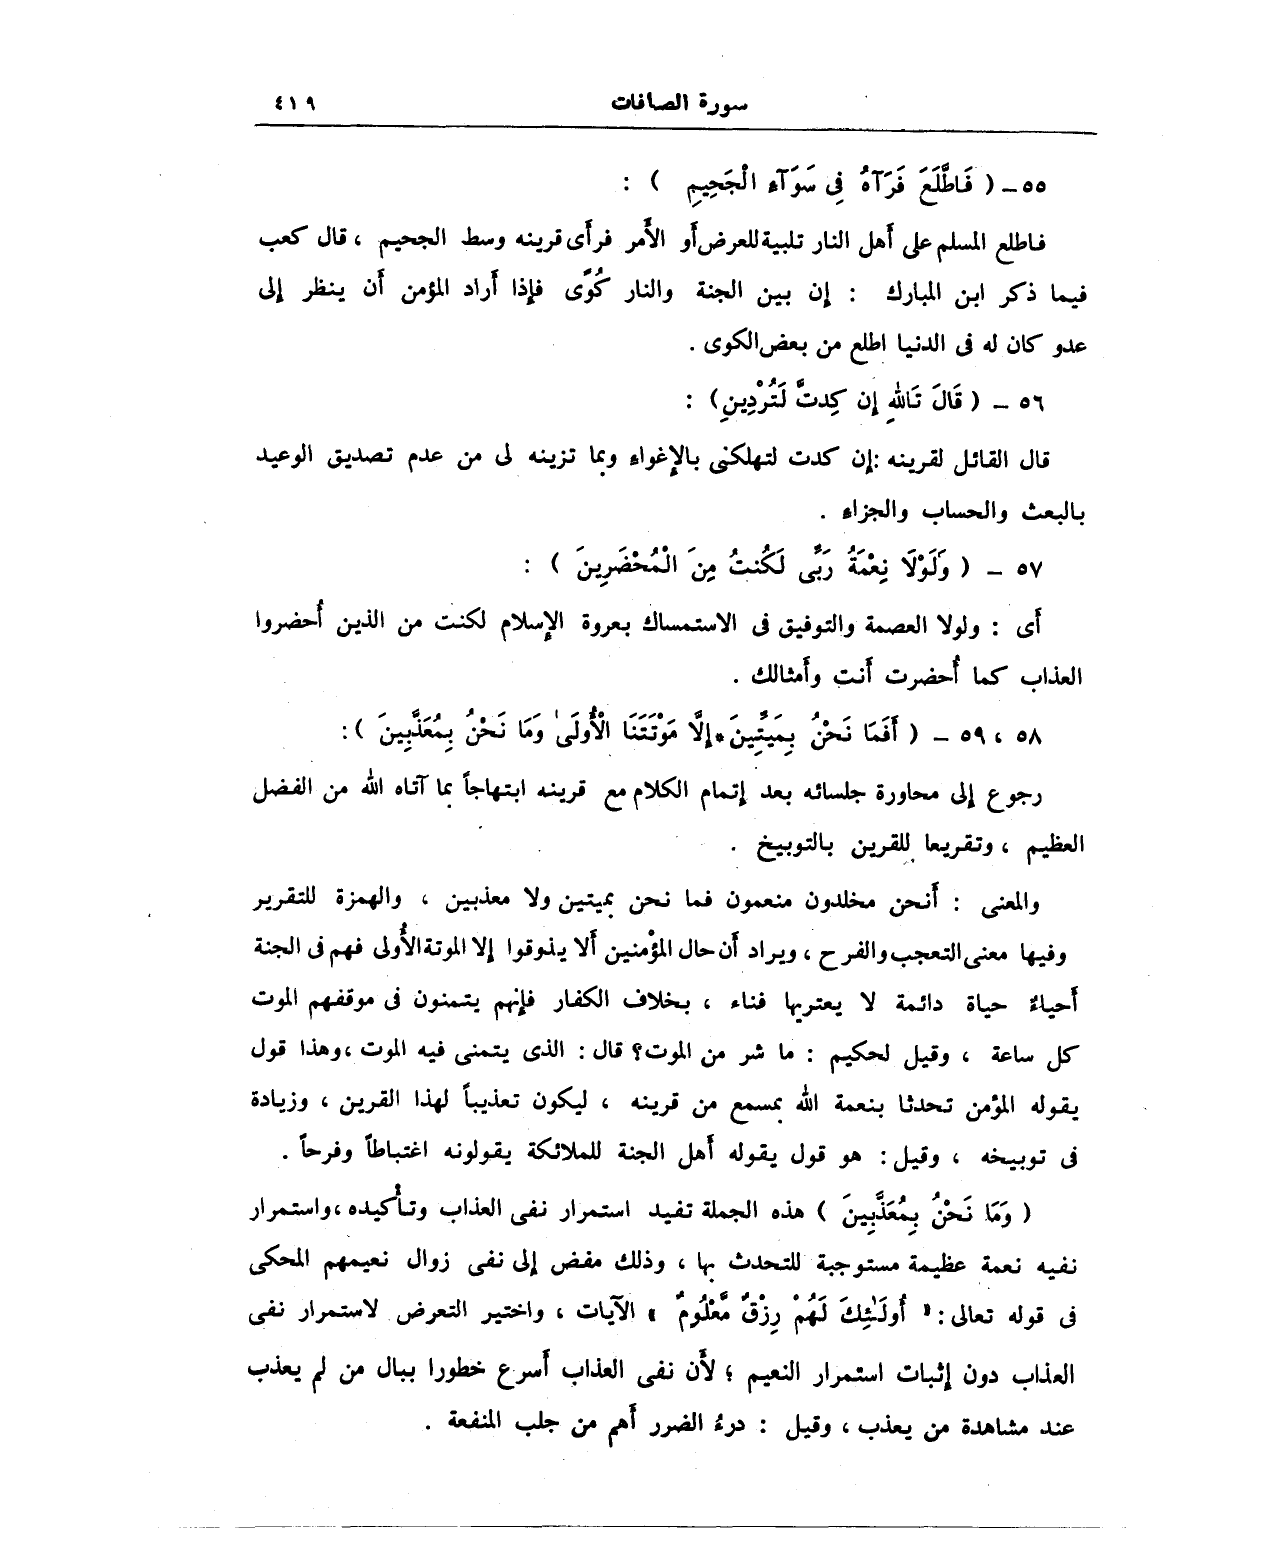 سورة الصافات ٤١٩
٥٥ـ ( فَاطَّلَعَ فَرَآهُ فِى سَوَآءِ الْجَحِيمِ ) :
فاطلع المسلم على أهل النار تلبية للعرض أو الأمر فرأى قرينه وسط الجحيم ، قال كعب
فيما ذكر ابن المبارك : إن بين الجنة والنار كُوًى فإذا أراد المؤمن أن ينظر إلى
عدو كان له فى الدنيا اطلع من بعض الكوى .
٥٦ ـ ( قَالَ تَاللهِ إِن كِدتَّ لَتُرْدِينِ ) :
قال القائل لقرينه : إن كدت لتهلكنى بالإغواء وبما تزينه لى من عدم تصديق الوعيد
بالبعث والحساب والجزاء .
٥٧ ـ ( وَلَوْلَا نِعْمَةُ رَبِّى لَكُنتُ مِنَ الْمُحْضَرِينَ ) :
أى : ولولا العصمة والتوفيق فى الاستمساك بعروة الإسلام لكنت من الذين أُحضروا
العذاب كما أُحضرت أنت وأمثالك .
٥٨ ، ٥٩ ـ ( أَفَمَا نَحْنُ بِمَيِّتِينَ * إِلَّا مَوْتَتَنَا الْأُولَىٰ وَمَا نَحْنُ بِمُعَذَّبِينَ ) :
رجوع إلى محاورة جلسائه بعد إتمام الكلام مع قرينه ابتهاجاً بما آتاه الله من الفضل
العظيم ، وتقريعا للقرين بالتوبيخ .
والمعنى : أنحن مخلدون منعمون فما نحن بميتين ولا معذبين ، والهمزة للتقرير
وفيها معنى التعجب والفرح ، ويراد أن حال المؤمنين ألا يذوقوا إلا الموتة الأُولى فهم فى الجنة
أحياءٌ حياة دائمة لا يعتريها فناء ، بخلاف الكفار فإنهم يتمنون فى موقفهم الموت
كل ساعة ، وقيل لحكيم : ما شر من الموت؟ قال : الذى يتمنى فيه الموت ، وهذا قول
يقوله المؤمن تحدثا بنعمة الله بمسمع من قرينه ، ليكون تعذيباً لهذا القرين ، وزيادة
فى توبيخه ، وقيل : هو قول يقوله أهل الجنة للملائكة يقولونه اغتباطاً وفرحاً .
( وَمَا نَحْنُ بِمُعَذَّبِينَ ) هذه الجملة تفيد استمرار نفى العذاب وتأكيده ، واستمرار
نفيه نعمة عظيمة مستوجبة للتحدث بها ، وذلك مفض إلى نفى زوال نعيمهم المحكى
فى قوله تعالى : « أُولَٰئِكَ لَهُمْ رِزْقٌ مَّعْلُومٌ » الآيات ، واختير التعرض لاستمرار نفى
العذاب دون إثبات استمرار النعيم ؛ لأن نفى العذاب أسرع خطورا ببال من لم يعذب
عند مشاهدة من يعذب ، وقيل : درءُ الضرر أهم من جلب المنفعة .